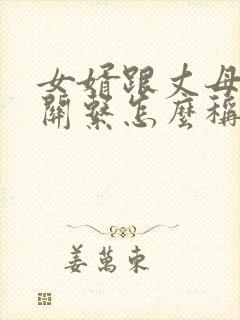 女婿跟丈母
關繫怎麼稱
姜萬東